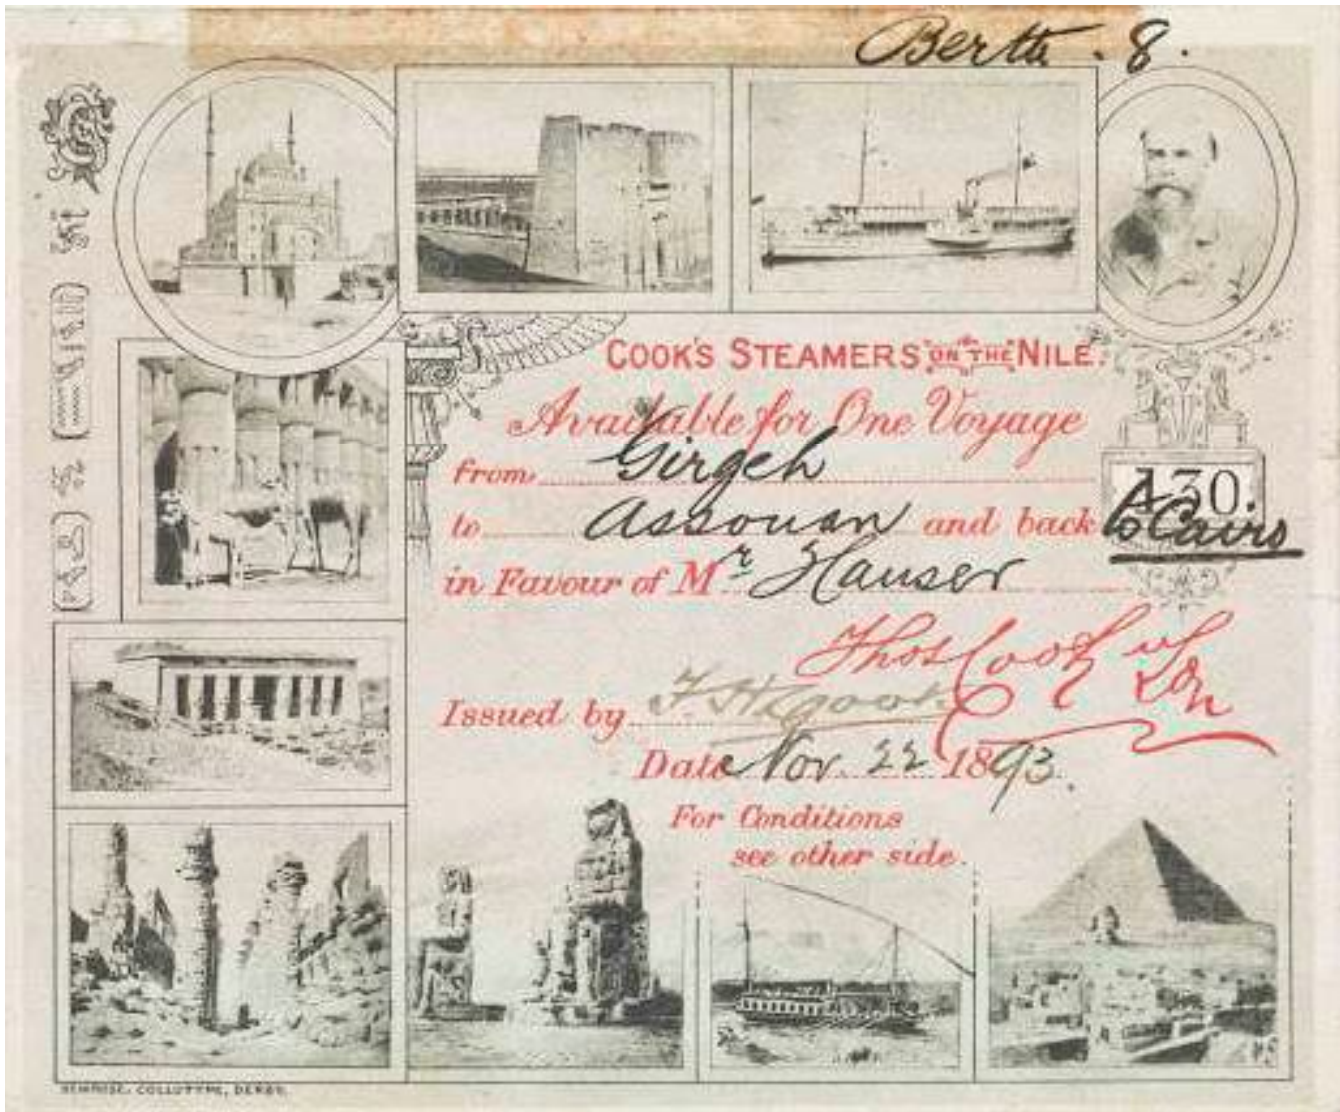 Berth. 8.
COOK'S STEAMERS ON THE NILE.
Available for One Voyage
from Girgeh
to Assouan and back to Cairo
A30.
in Favour of Mr. Hauser
Thos Cook & Son
Issued by
Date Nov. 22 1893.
For Conditions
see other side.
BEMROSE, COLLOTYPE, DERBY.